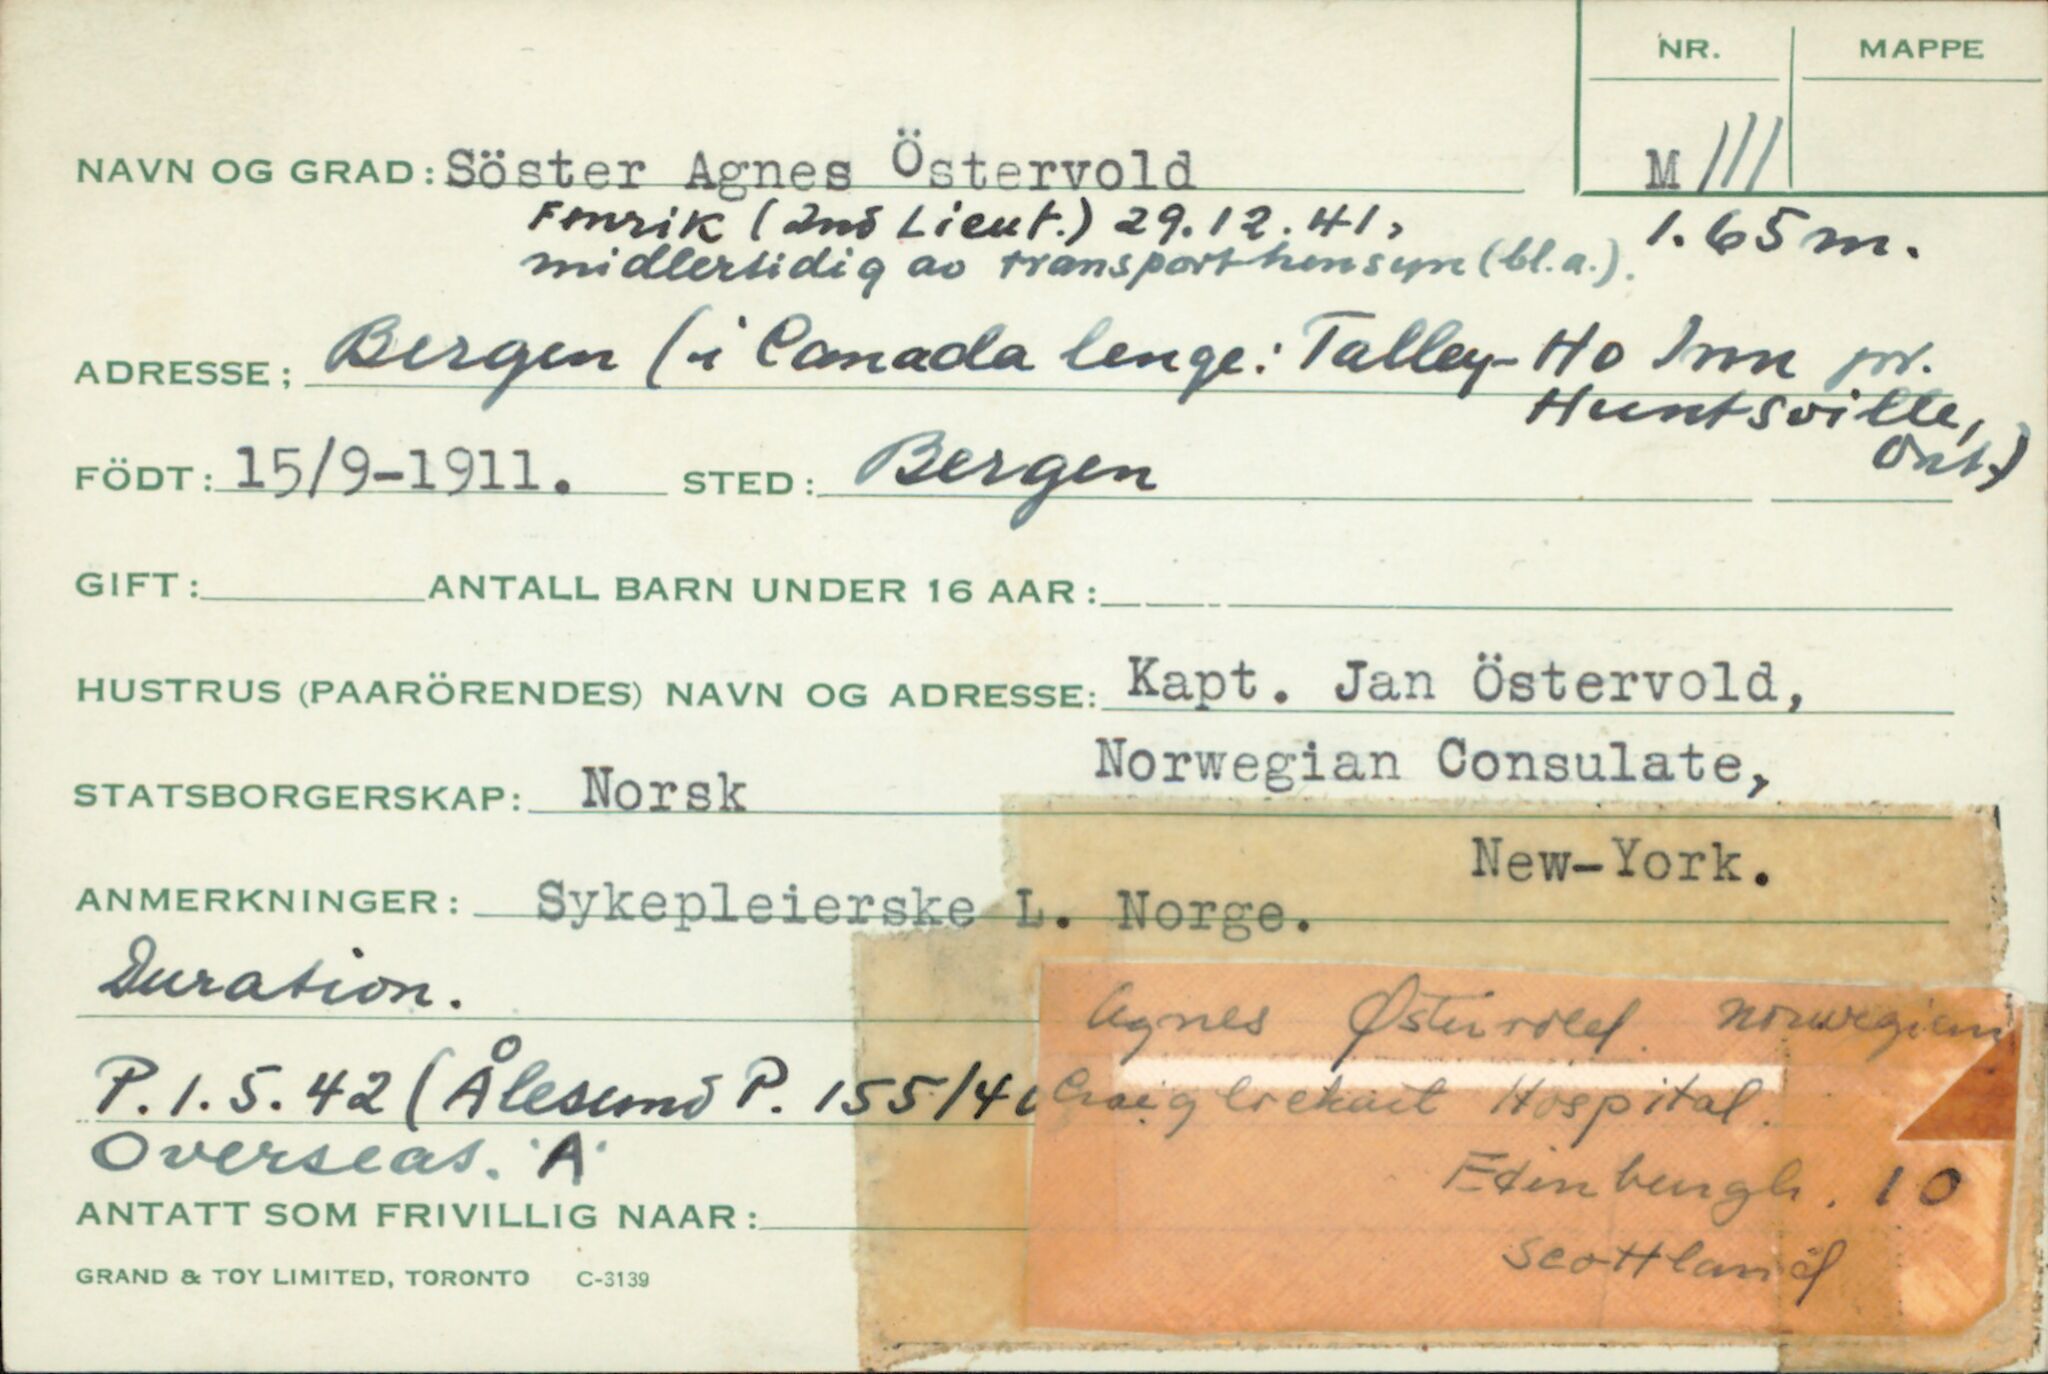 NR. MAPPE
NAVN OG GRAD: Söster Agnes Östervold M 111
Fenrik (2nd Lieut.) 29.12.41, 1.65 m.
midlertidig av transporthensyn (bl.a.).
ADRESSE; Bergen (i Canada lenge: Talley-Ho Inn pr.
Huntsville,
Ont.)
FÖDT: 15/9-1911. STED: Bergen
GIFT: ANTALL BARN UNDER 16 AAR:
HUSTRUS (PAARÖRENDES) NAVN OG ADRESSE: Kapt. Jan Östervold,
Norwegian Consulate,
STATSBORGERSKAP: Norsk
New-York.
ANMERKNINGER: Sykepleierske L. Norge.
Duration.
Agnes Østervold Norwegian
P. 1.5.42 (Ålesund P. 155/4
Craiglockhart Hospital.
Overseas. "A"
Edinburgh. 10
ANTATT SOM FRIVILLIG NAAR:
Scottland
GRAND & TOY LIMITED, TORONTO C-3139